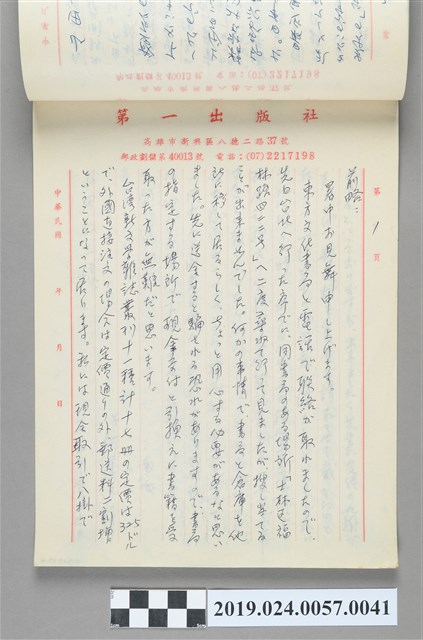 第一出版社
高雄市新興區八德二路37號
郵政劃儲第40013號　電話：(07)2217198
第 1 頁
前略：
暑中お見舞申し上げます。
東方文化書局と電話で聯絡が取れましたので、
先日台北へ行った序でに、同書局のある場所「士林区福
林路四二二号」へ二度尋ねて行って見ましたが、捜し当てる
ことが出来ませんでした。何かの事情で、書局と倉庫を他
処に移して居るらしく、ちょっと用心する必要があるなと思い
ました。先に送金すると騙される恐れがありますので、書局
の指定する場所で現金交付と引換えに書籍を受
取った方が無難だと思います。
台湾新文学雑誌叢刊十一種計十七册の定價は325ドル
で外國直接注文の場合は定價通りの外、郵送料一割増
ということになって居ります。私には現金取引で八掛で
中華民國　年　月　日
(07)2217198
2019.024.0057.0041